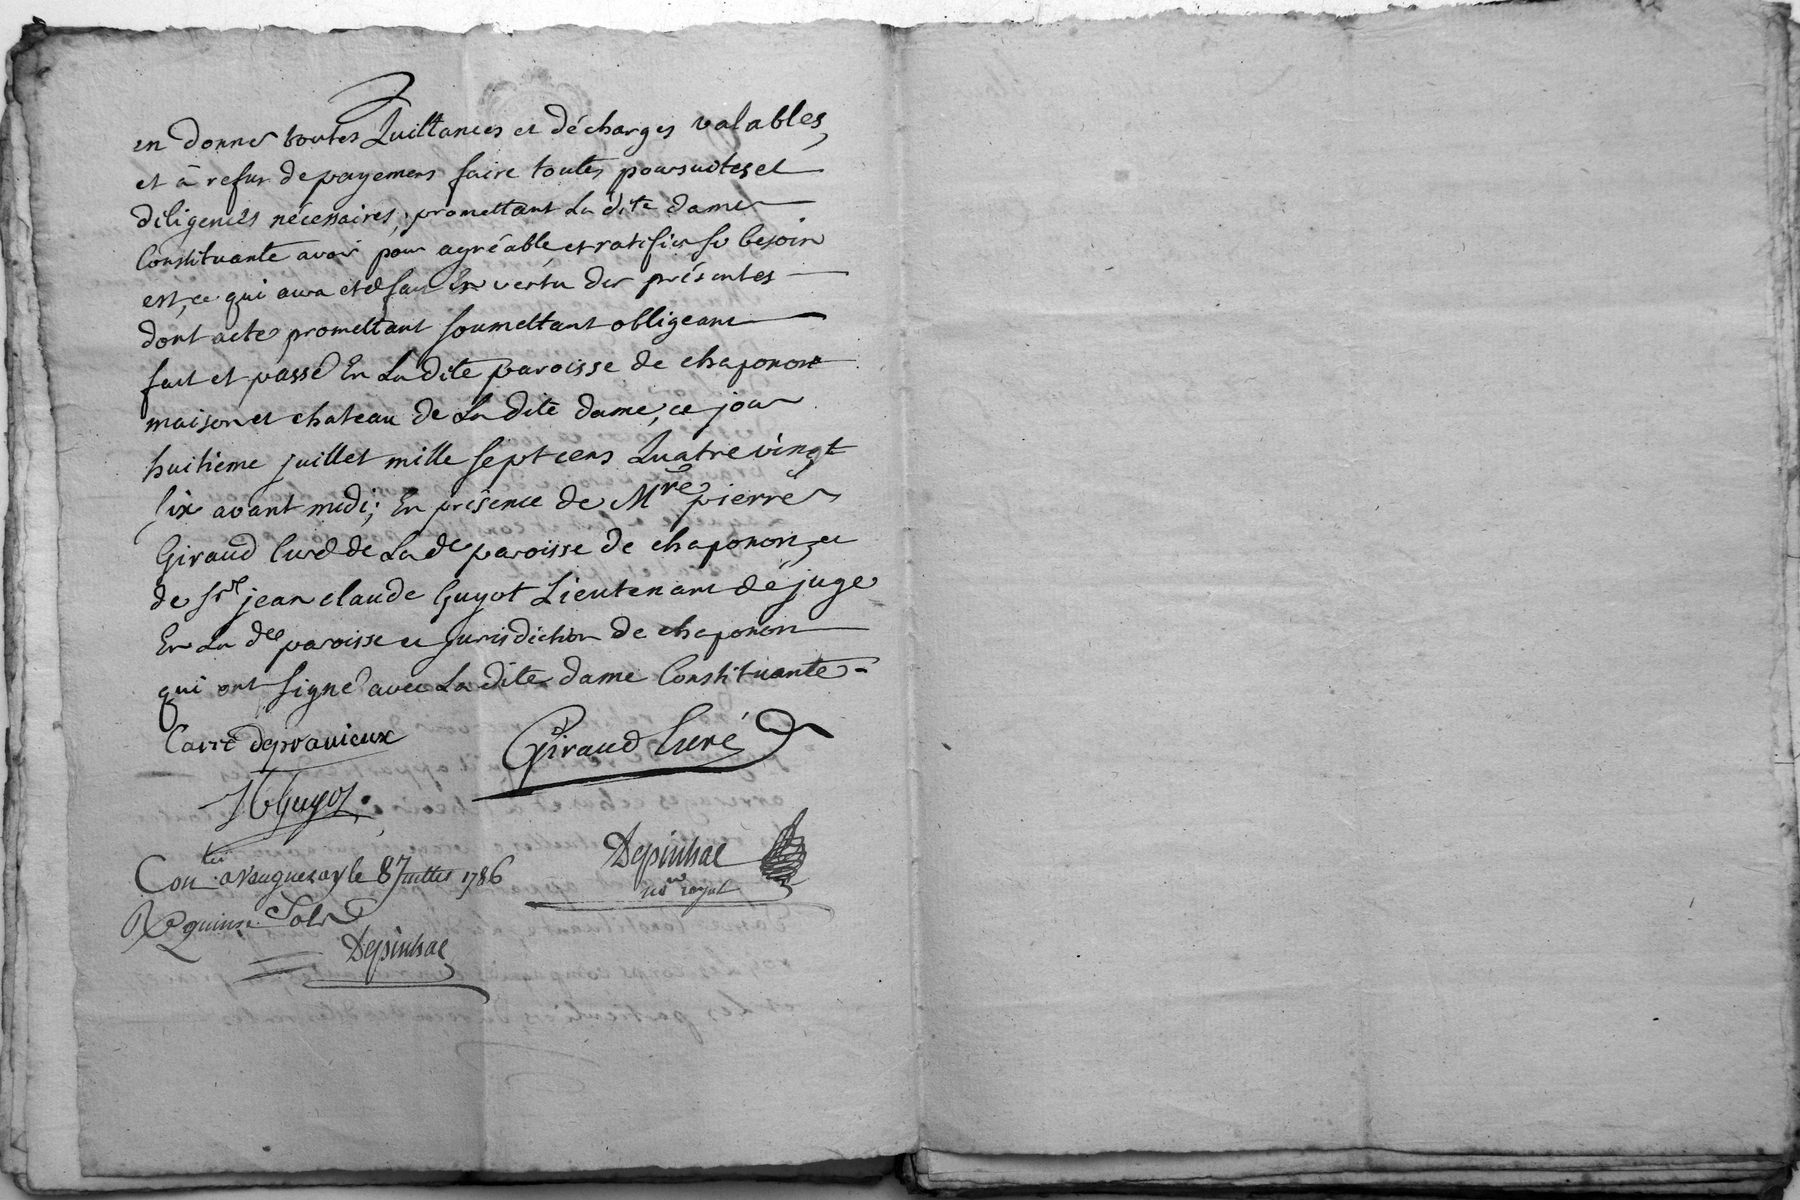 en donner toutes Quittances et décharges valables,
et à refus de payemens faire toutes poursuites et
diligences nécessaires, promettant La dite dame
Constituante avoir pour agréable, et ratifier si besoin
est, ce qui aura eté fait En vertu des présentes
dont acte promettant soumettant obligeant
fait et passé En La dite paroisse de chaponon
maison et chateau de La dite dame, ce jour
huitieme juillet mille sept cens Quatre vingt
six avant midi; En présence de Mre pierre
Giraud Curé de La de paroisse de chaponon, et
de Sr jean claude Guyot Lieutenant de juge
En La de paroisse et jurisdiction de chaponon
qui ont signé avec La dite dame Constituante
Carré depravieux
Giraud Curé
JC Guyot
Depinhac
no re royal
Con lé a Vaugneray le 8 Juillet 1786
Rç quinze Sols
Depinhac